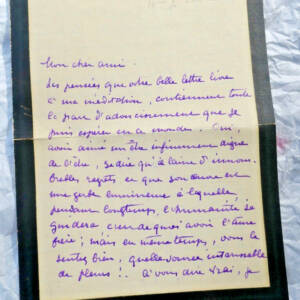 Mon cher ami
Les pensées que votre belle lettre livre
à ma méditation, contiennent toute
la part d'adoucissement que je
puis espérer en ce monde. Oui
avoir aimé un être infiniment digne
de l'être, se dire qu'il laisse d'innom-
brables regrets, et que son œuvre est
une gerbe lumineuse à laquelle
pendant longtemps, l'humanité se
guidera c'est de quoi avoir l'âme
fière ; mais en même temps, vous le
sentez bien, quelle source intarissable
de pleurs !. à vous dire vrai, je